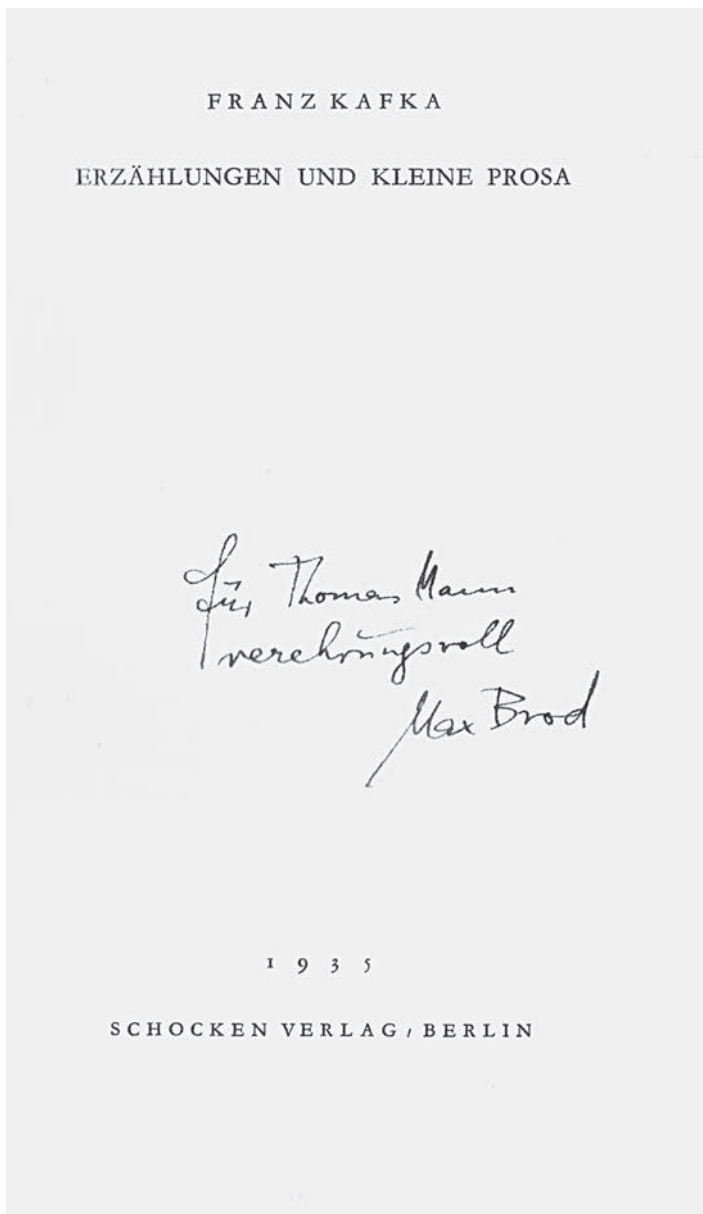 FRANZ KAFKA
ERZÄHLUNGEN UND KLEINE PROSA
für Thomas Mann
verehrungsvoll
Max Brod
1935
SCHOCKEN VERLAG / BERLIN